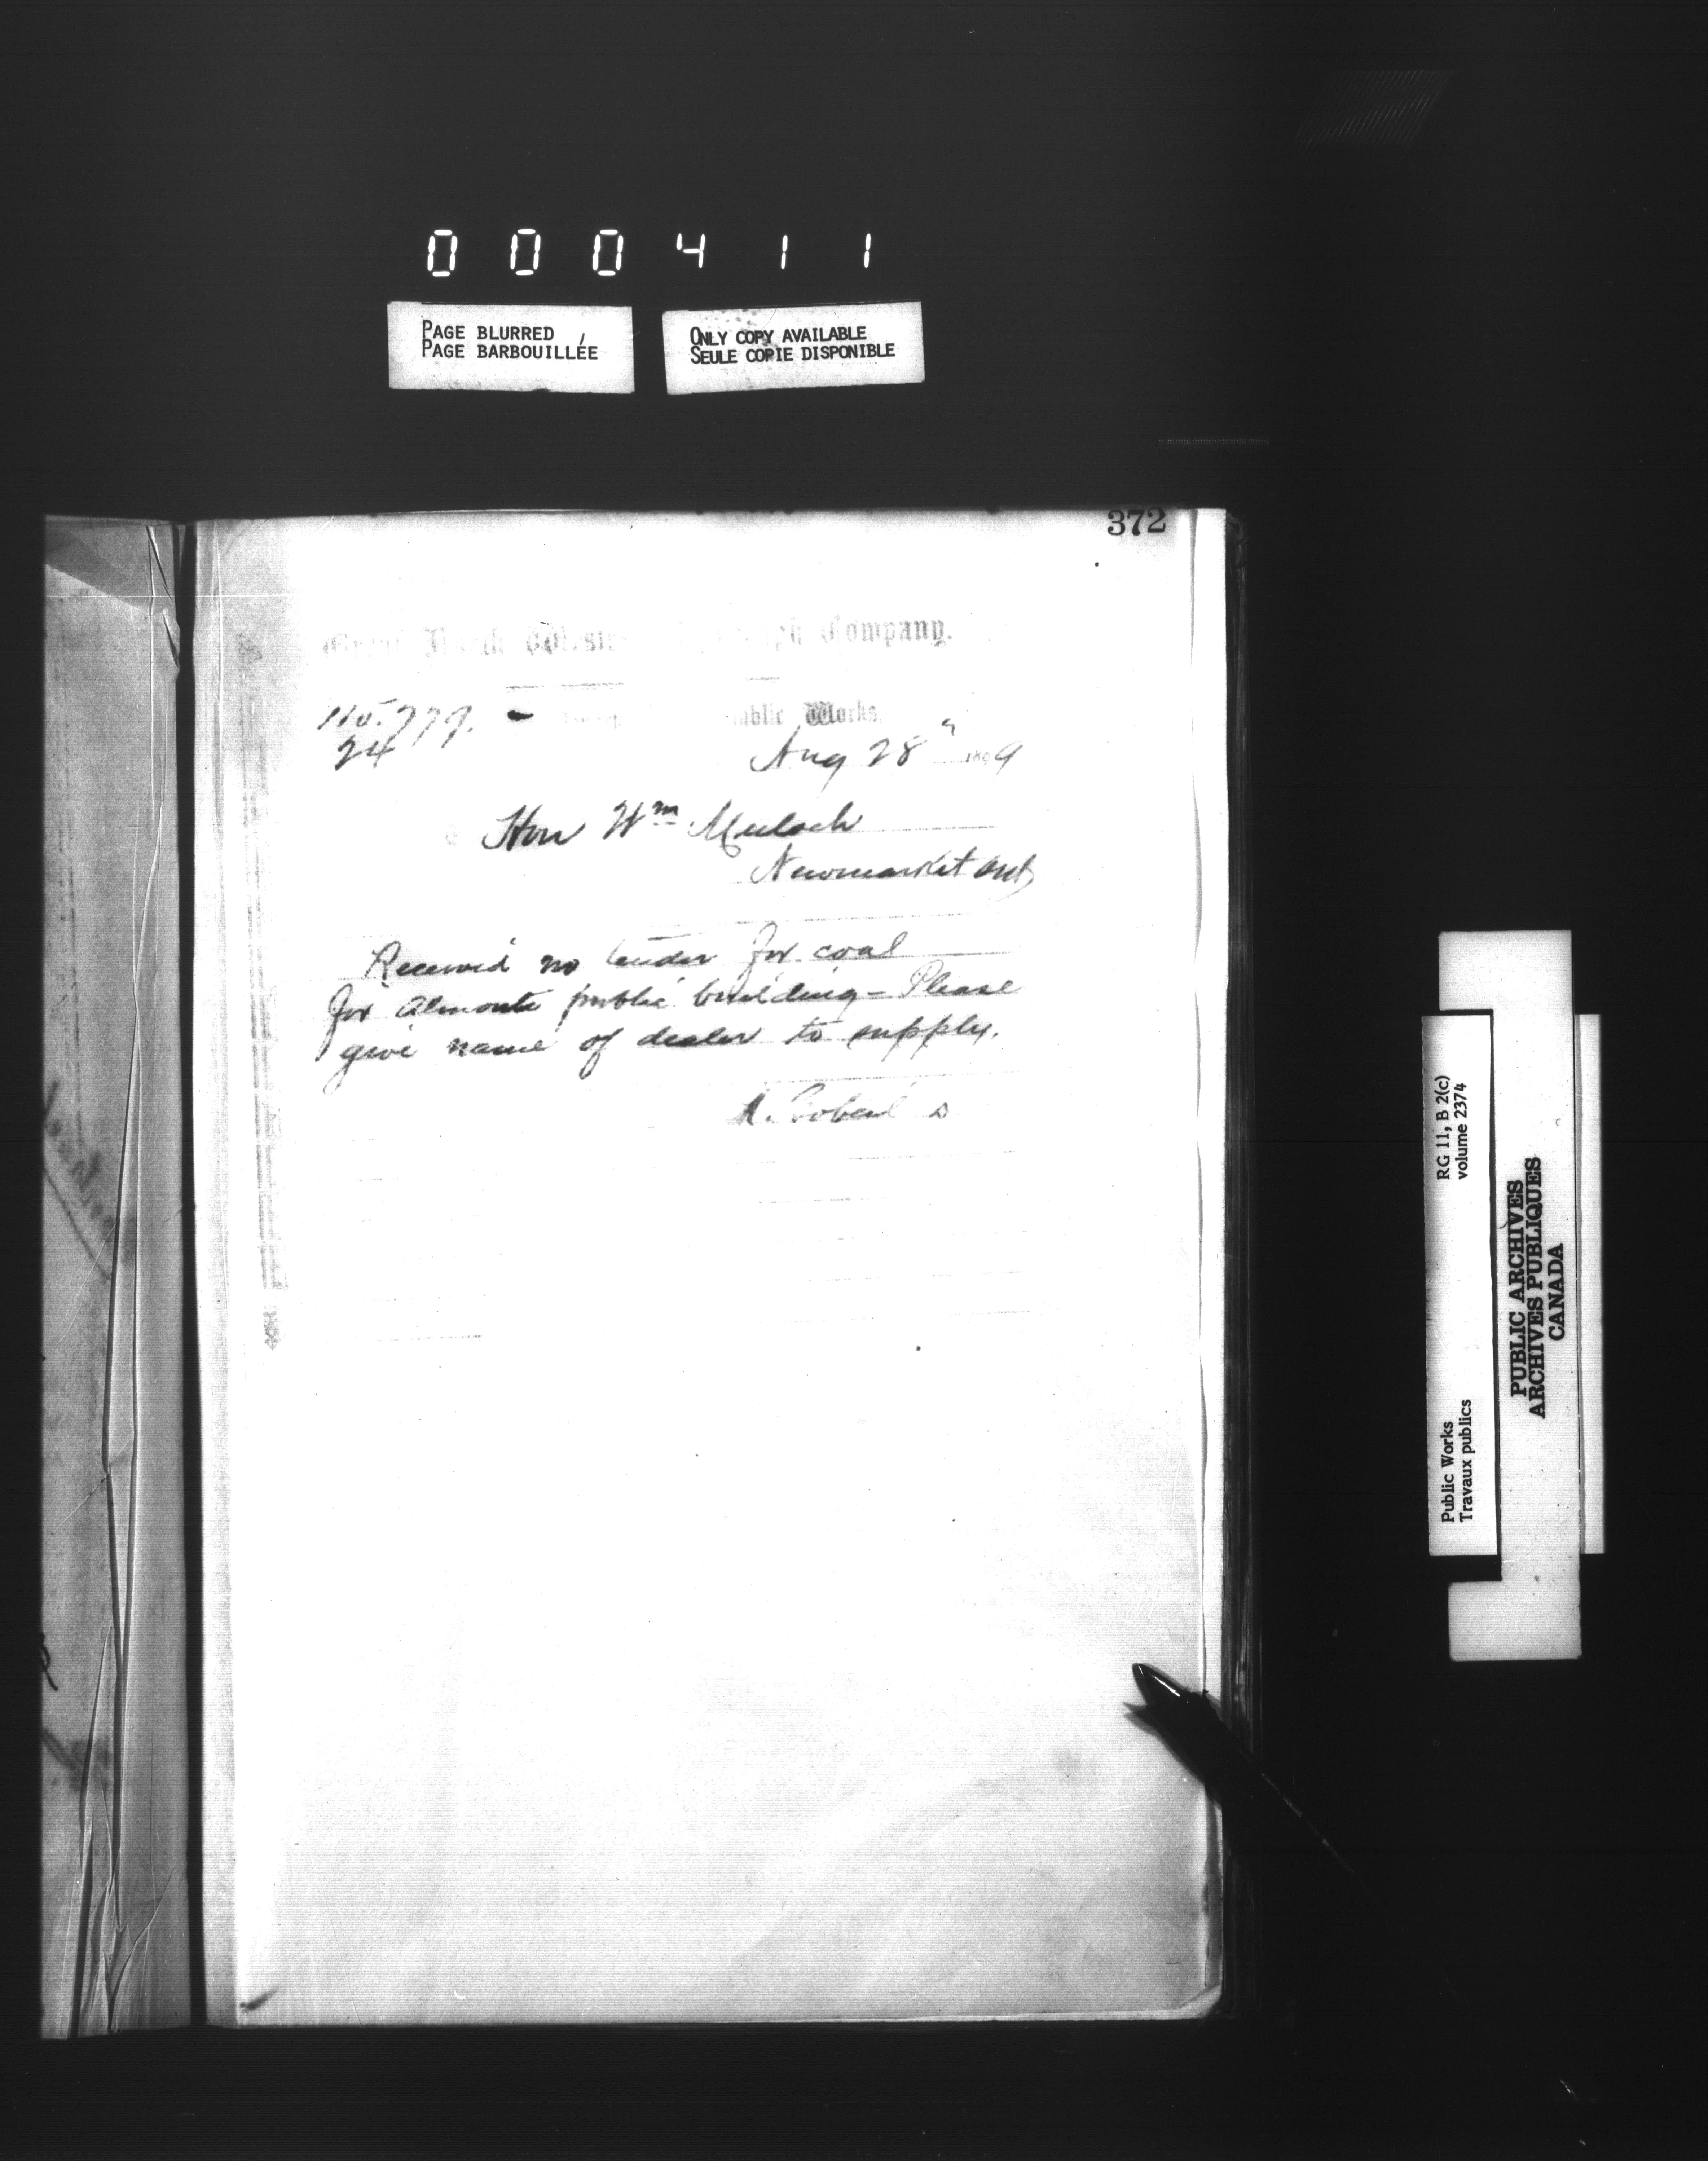 000411
PAGE BLURRED
PAGE BARBOUILLÉE
ONLY COPY AVAILABLE
SEULE COPIE DISPONIBLE
372
Company.
Public Works,
24
Aug 28" 1899
Hon Wm Mulock
Newmarket Ont
Received no tender for coal
for Almonte public building - Please
give name of dealer to supply.
A. Gobeil
RG 11, B 2(c)
volume 2374
Public Works
Travaux publics
PUBLIC ARCHIVES
ARCHIVES PUBLIQUES
CANADA